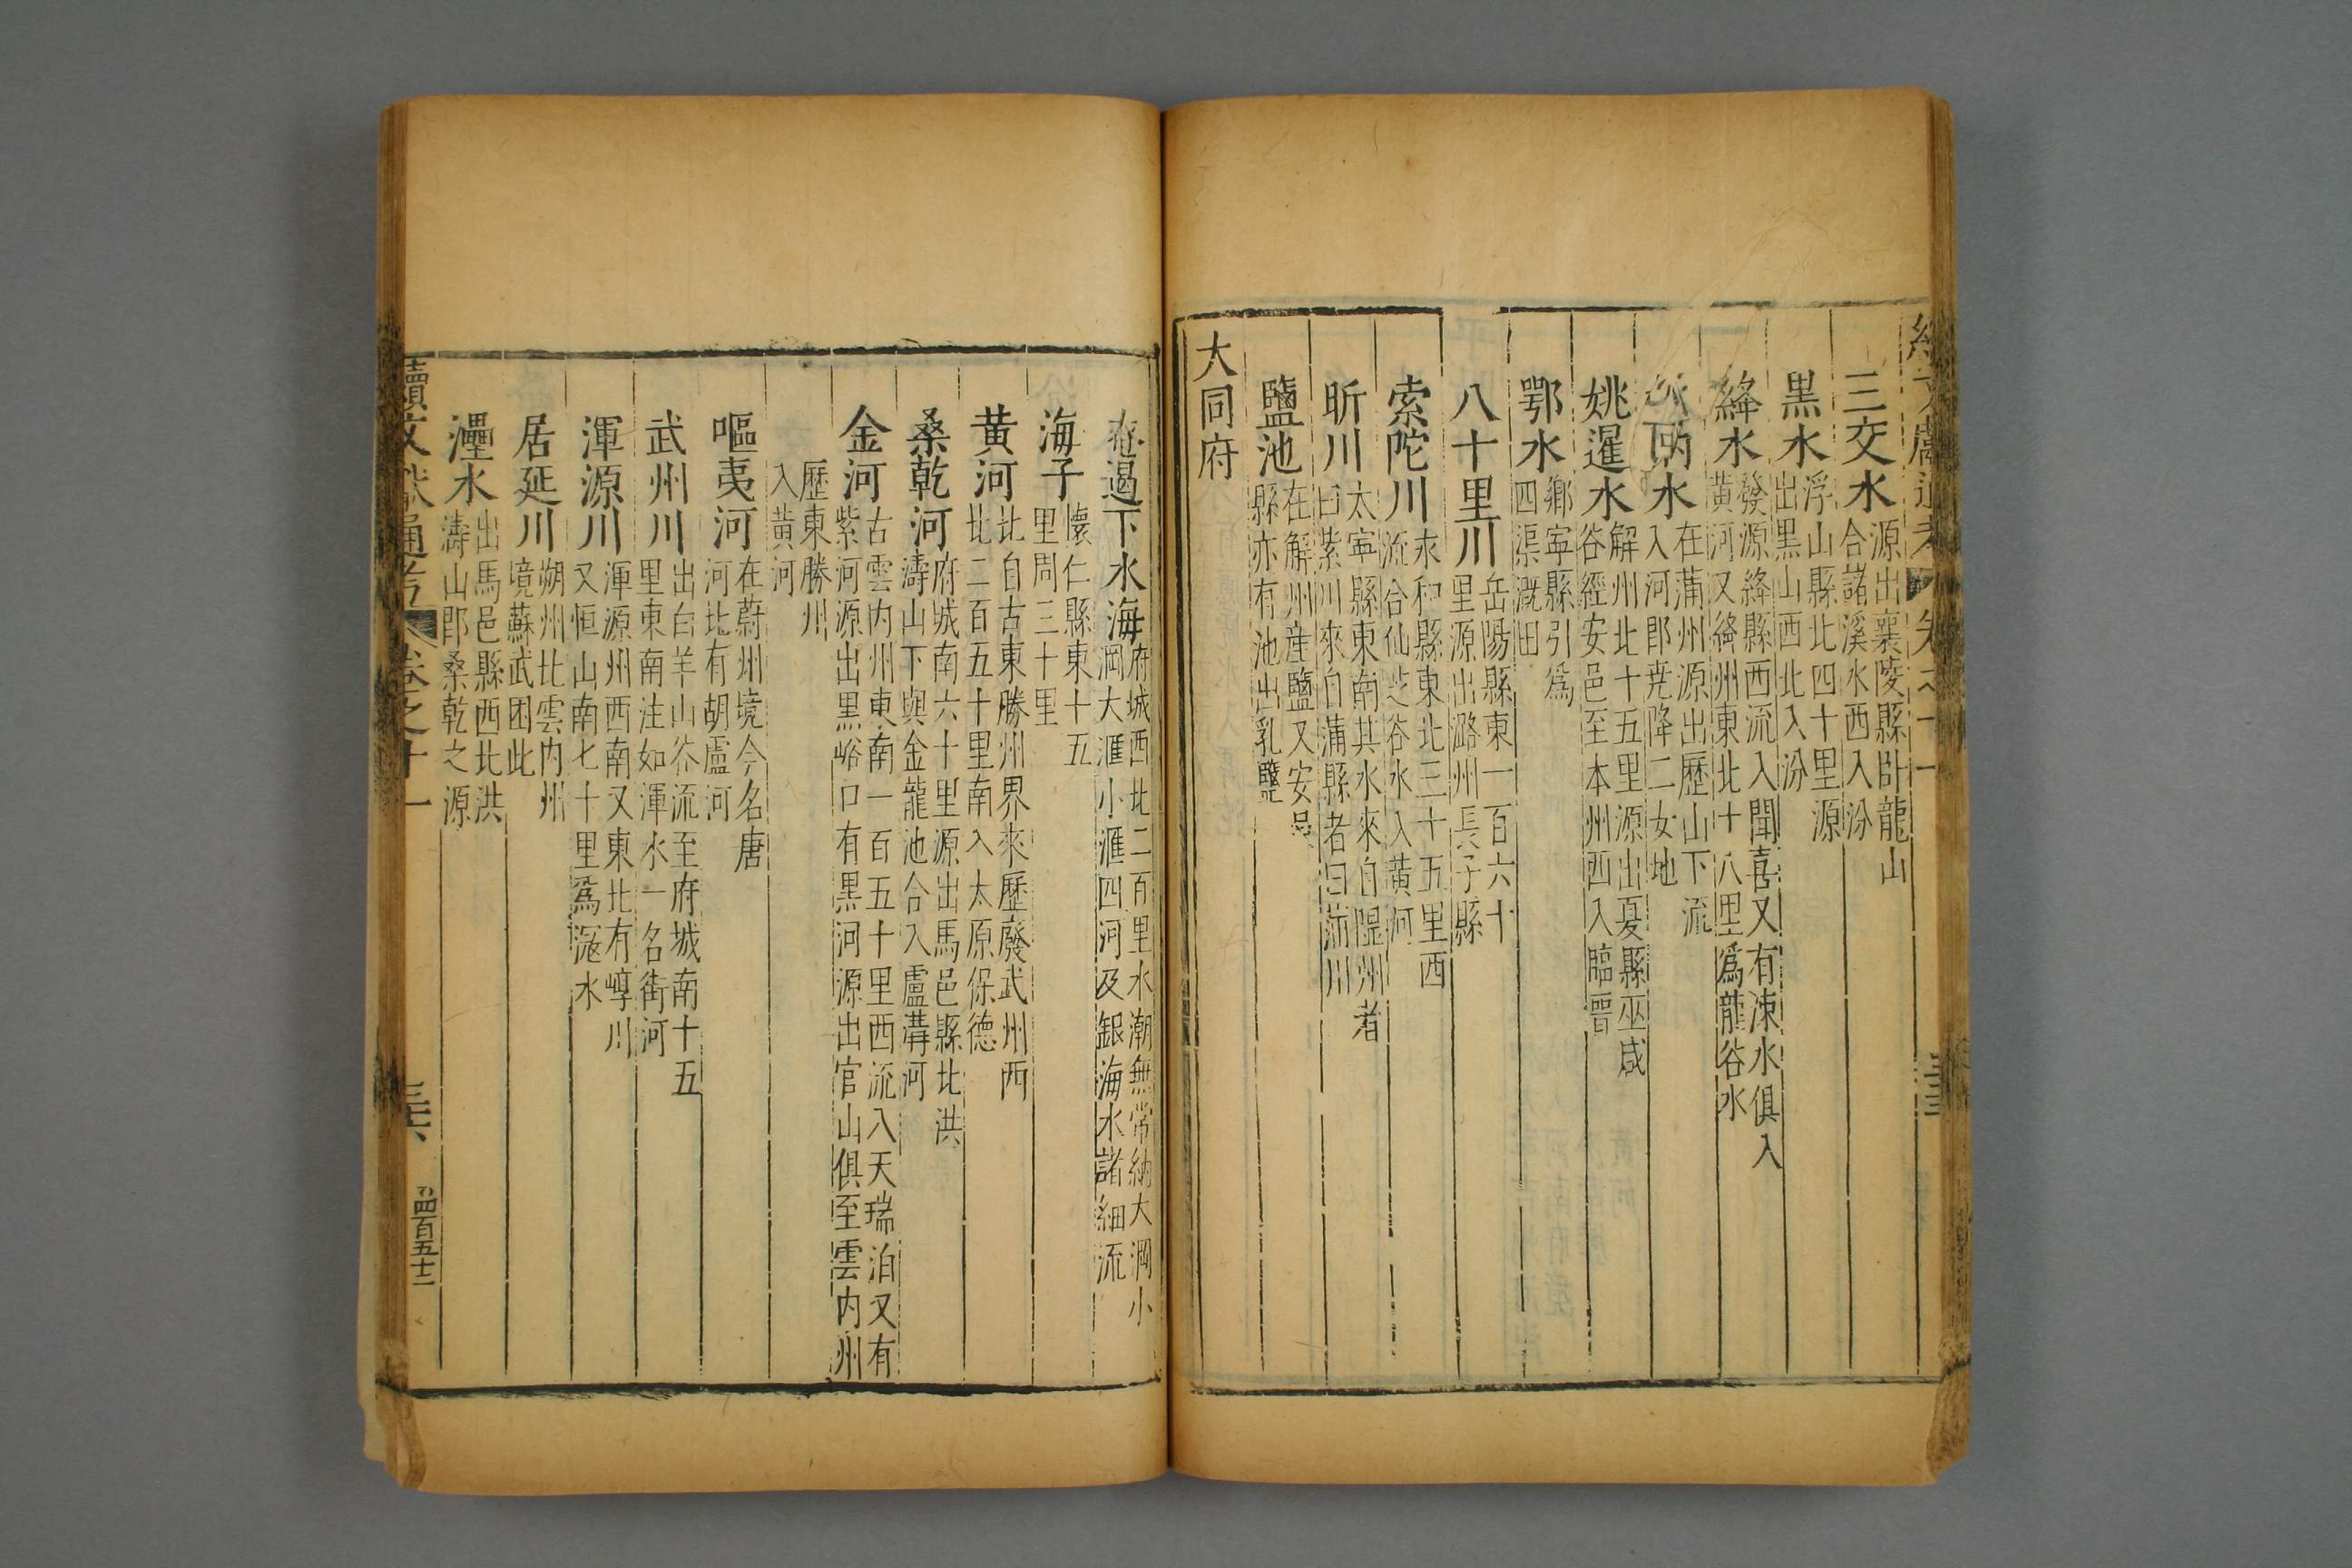 三交水 源出襄陵縣卧龍山
合諸溪水西入汾
黒水 浮山縣北四十里源
出黒山西北入汾
絳水 發源絳縣西流入聞喜又有涑水俱入
黃河又絳州東北十八里爲龍谷水
汭水 在蒲州源出歷山下流
入河郎堯降二女地
姚暹水 解州北十五里源出夏縣巫咸
谷經安邑至本州西入臨晉
鄂水 鄉寧縣引爲
四渠溉田
八十里川 岳陽縣東一百六十
里源出潞州長子縣
索陀川 永和縣東北三十五里西
流合仙芝谷水入黃河
昕川 太寧縣東南其水來自隰州者
曰紫川來自蒲縣者曰蒲川
鹽池 在解州産鹽又安邑
縣亦有池出乳鹽
大同府
奄遏下水海 府城西北二百里水潮無常納大澗小
澗大滙小滙四河及銀海水諸細流
海子 懷仁縣東十五
里周三十里
黃河 北自古東勝州界來歷廢武州西
北二百五十里南入太原保德
桑乾河 府城南六十里源出馬邑縣北洪
濤山下與金龍池合入盧溝河
金河 古雲内州東南一百五十里西流入天瑞泊又有
紫河源出黒峪口有黒河源出官山俱至雲内州
歷東勝州
入黃河
嘔夷河 在蔚州境今名唐
河北有胡盧河
武州川 出白羊山谷流至府城南十五
里東南注如渾水一名街河
渾源川 渾源州西南又東北有崞川
又恒山南七十里爲滱水
居延川 朔州北雲内州
境蘇武困此
灅水 出馬邑縣西北洪
濤山郎桑乾之源
續文獻通考 卷之十一
三十六
四百五十二